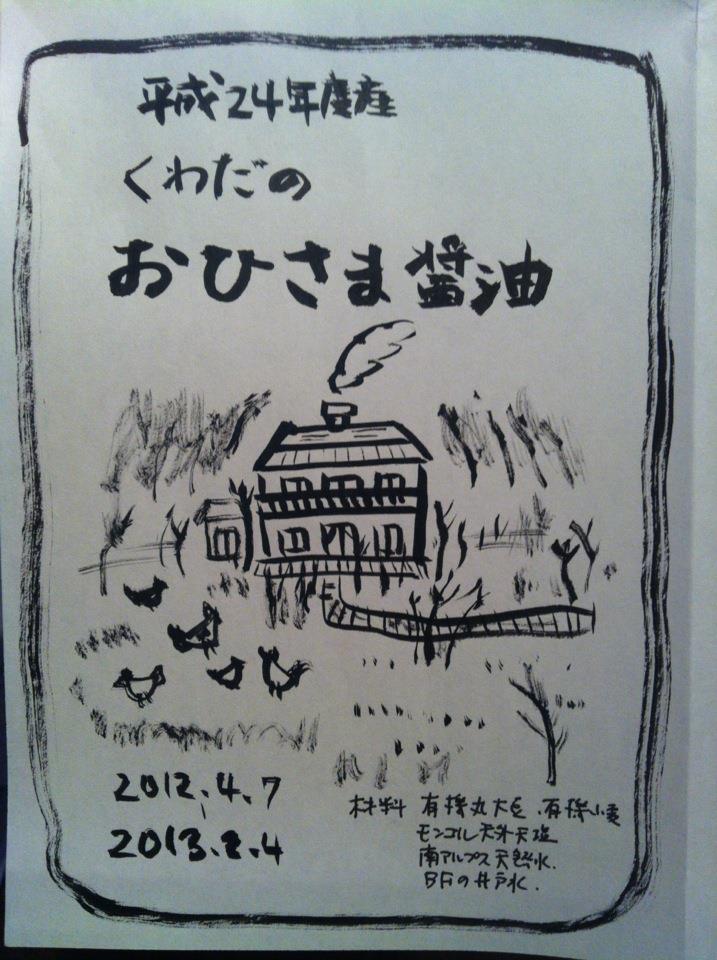 平成24年度産
くわだの
おひさま醤油
2012.4.7
|
2013.2.4
材料 有機丸大豆、有機小麦
モンゴル天外天塩
南アルプス天然水.
の井戸水.